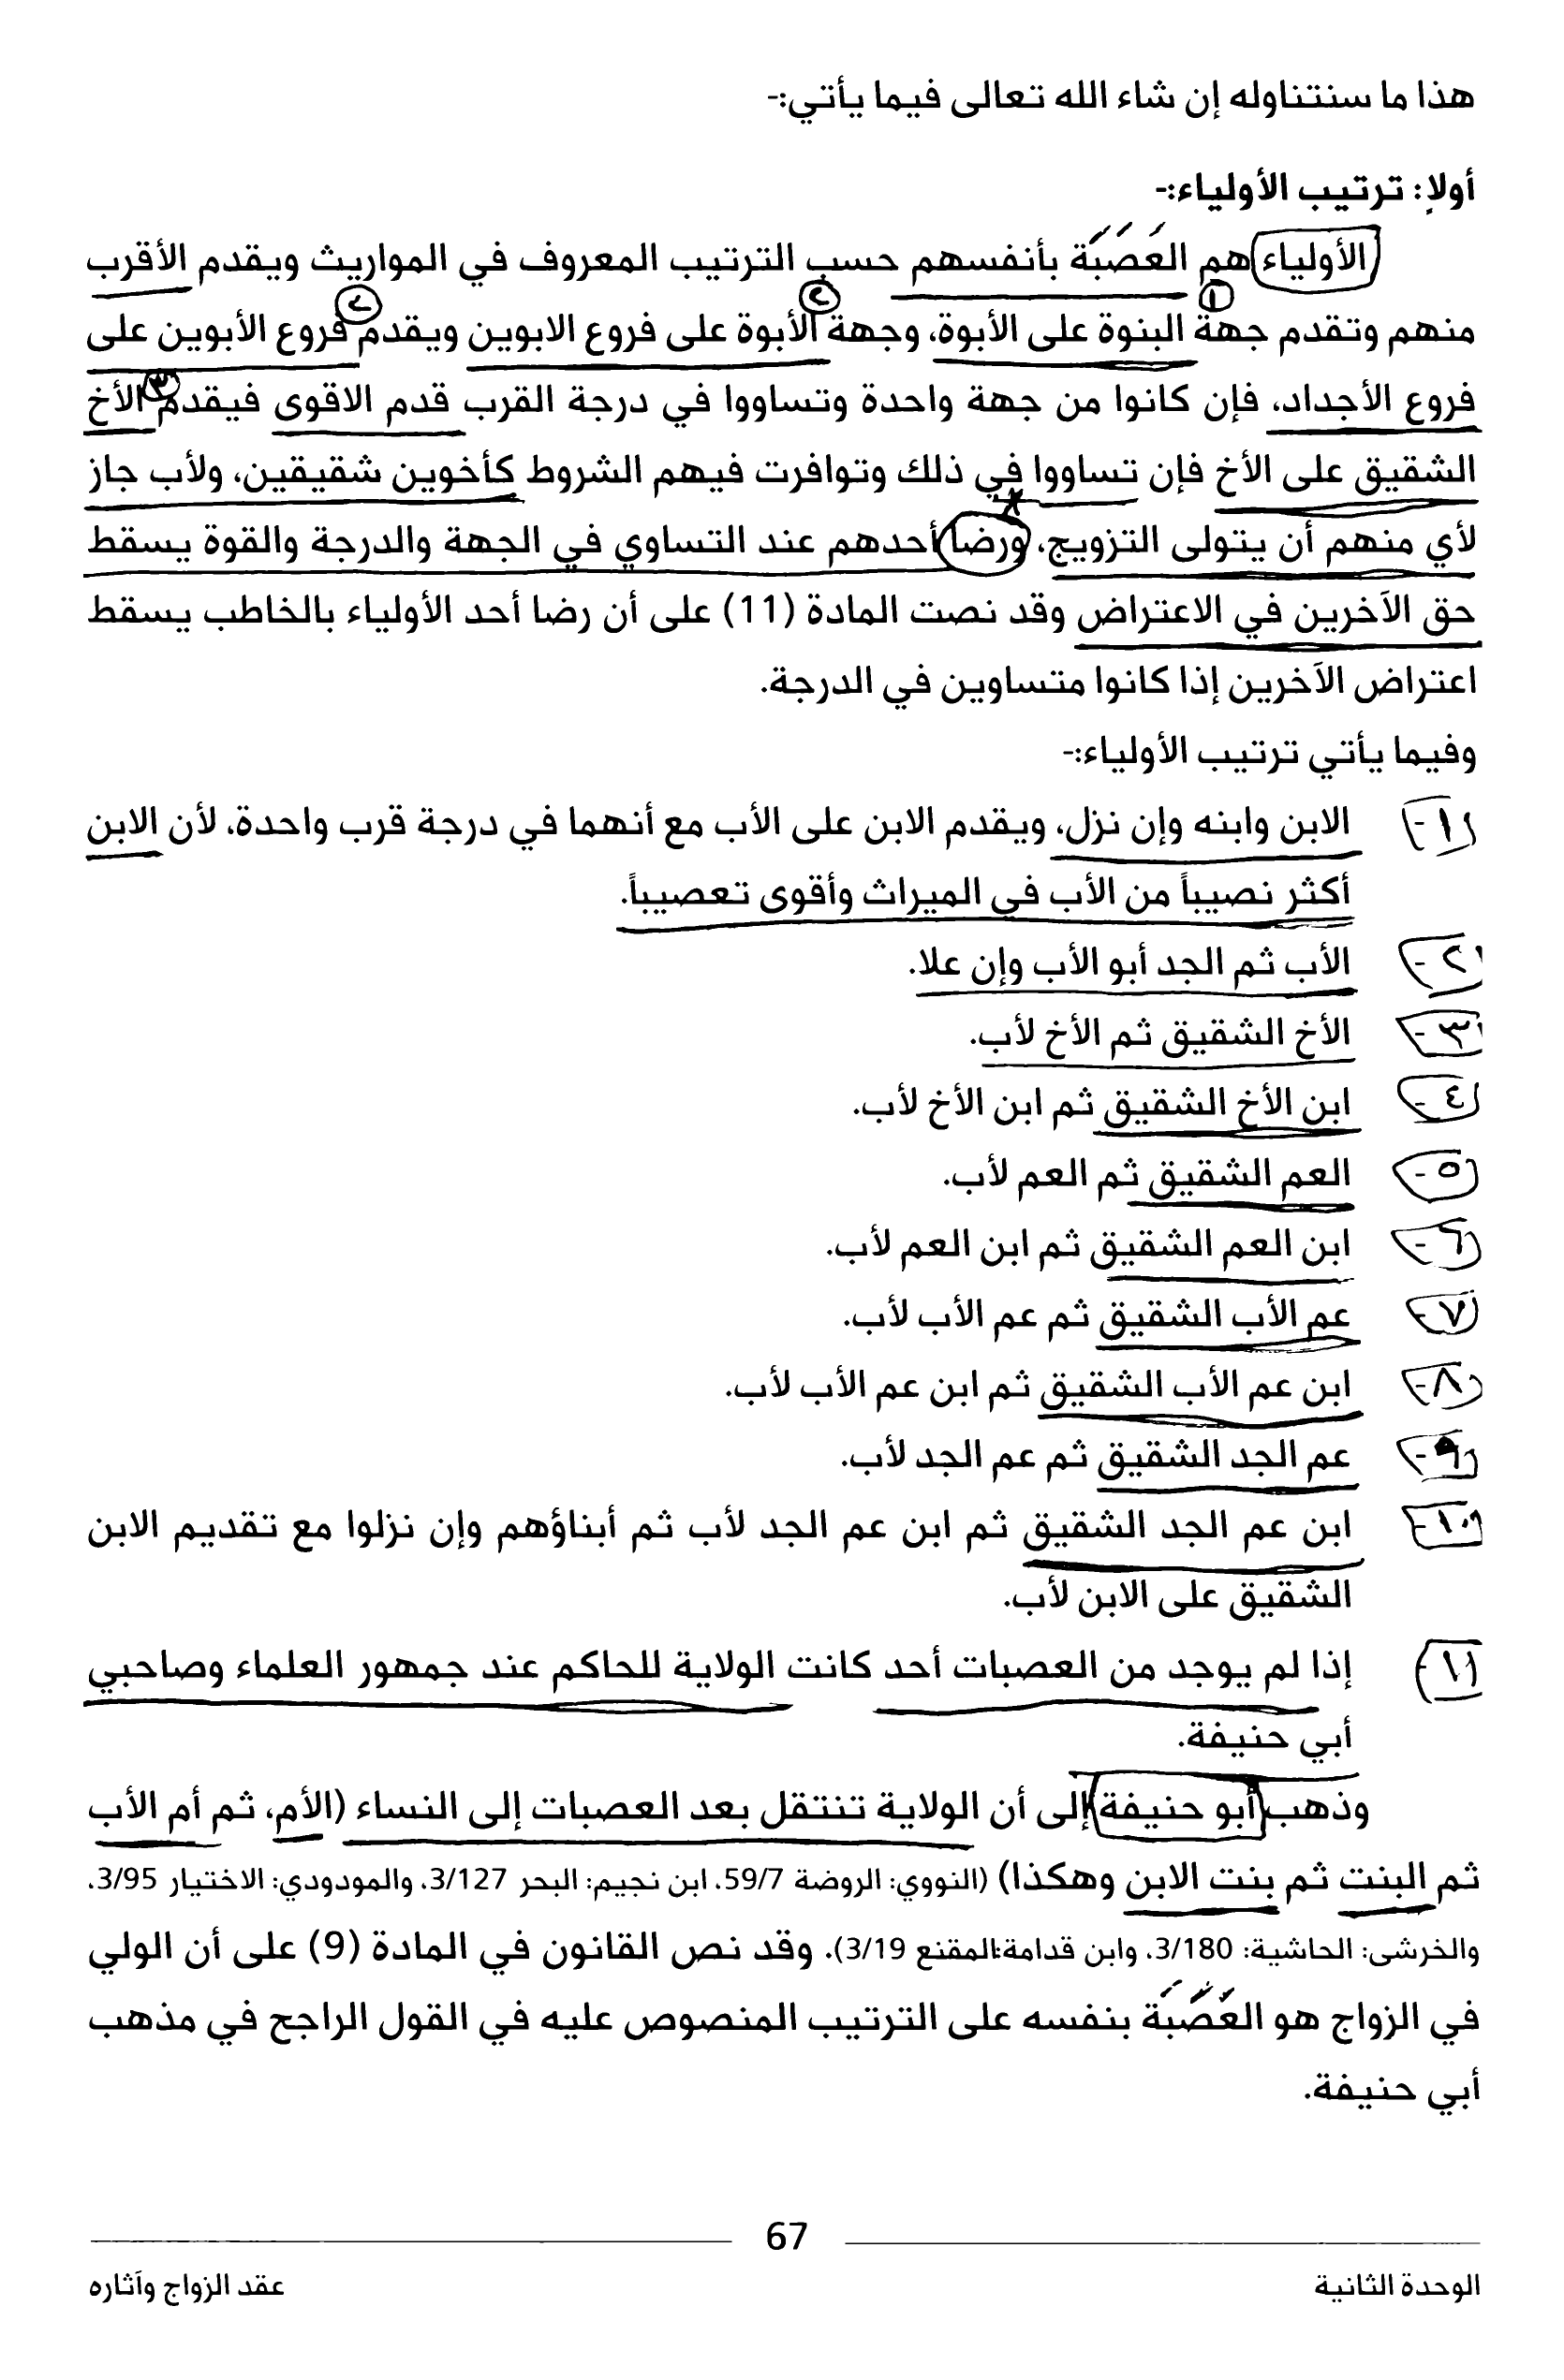 هذا ما سنتناوله إن شاء الله تعالى فيما يأتي:-
أولا: ترتيب الأولياء:-
الأولياء هم العَصَبَة بأنفسهم حسب الترتيب المعروف في المواريث ويقدم الأقرب
منهم وتقدم جهة البنوة على الأبوة، وجهة الأبوة على فروع الابوين ويقدم فروع الأبوين على
فروع الأجداد، فإن كانوا من جهة واحدة وتساووا في درجة القرب قدم الاقوى فيقدم الأخ
الشقيق على الأخ فإن تساووا في ذلك وتوافرت فيهم الشروط كأخوين شقيقين، ولأب جاز
لأي منهم أن يتولى التزويج، ورضا أحدهم عند التساوي في الجهة والدرجة والقوة يسقط
حق الآخرين في الاعتراض وقد نصت المادة (11) على أن رضا أحد الأولياء بالخاطب يسقط
اعتراض الآخرين إذا كانوا متساوين في الدرجة.
وفيما يأتي ترتيب الأولياء:-
١- الابن وابنه وإن نزل، ويقدم الابن على الأب مع أنهما في درجة قرب واحدة، لأن الابن
أكثر نصيباً من الأب في الميراث وأقوى تعصيباً.
٢- الأب ثم الجد أبو الأب وإن علا.
٣- الأخ الشقيق ثم الأخ لأب.
٤- ابن الأخ الشقيق ثم ابن الأخ لأب.
٥- العم الشقيق ثم العم لأب.
٦- ابن العم الشقيق ثم ابن العم لأب.
٧- عم الأب الشقيق ثم عم الأب لأب.
٨- ابن عم الأب الشقيق ثم ابن عم الأب لأب.
٩- عم الجد الشقيق ثم عم الجد لأب.
١٠- ابن عم الجد الشقيق ثم ابن عم الجد لأب ثم أبناؤهم وإن نزلوا مع تقديم الابن
الشقيق على الابن لأب.
١١- إذا لم يوجد من العصبات أحد كانت الولاية للحاكم عند جمهور العلماء وصاحبي
أبي حنيفة.
وذهب أبو حنيفة إلى أن الولاية تنتقل بعد العصبات إلى النساء (الأم، ثم أم الأب
ثم البنت ثم بنت الابن وهكذا) (النووي: الروضة 59/7، ابن نجيم: البحر 3/127، والمودودي: الاختيار 3/95،
والخرشى: الحاشية: 3/180، وابن قدامة:المقنع 3/19). وقد نص القانون في المادة (9) على أن الولي
في الزواج هو العَصَبَة بنفسه على الترتيب المنصوص عليه في القول الراجح في مذهب
أبي حنيفة.
67
الوحدة الثانية
عقد الزواج وآثاره